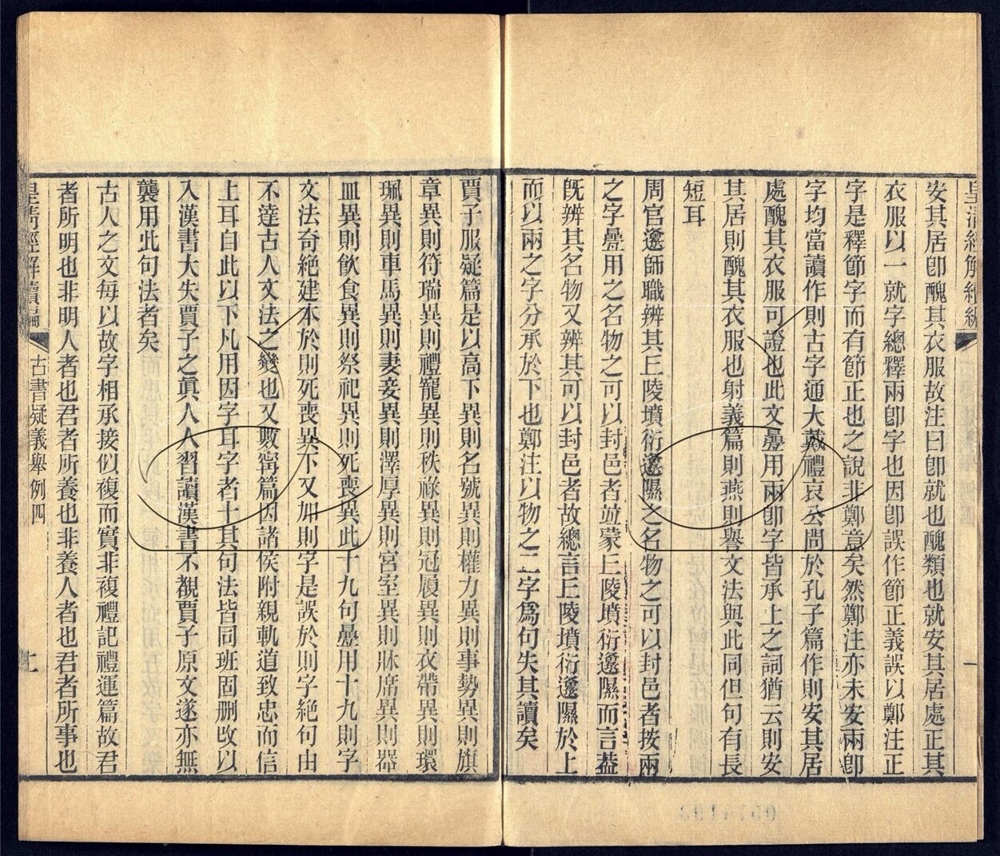 皇清經解續編
安其居卽醜其衣服故注曰卽就也醜類也就安其居處正其
衣服以一就字總釋兩卽字也因卽誤作節正義誤以鄭注正
字是釋節字而有節正也之說非鄭意矣然鄭注亦未安兩卽
字均當讀作則古字通大戴禮哀公問於孔子篇作則安其居
處醜其衣服可證也此文疊用兩卽字皆承上之詞猶云則安
其居則醜其衣服也射義篇則燕則譽文法與此同但句有長
短耳
周官邍師職辨其丘陵墳衍邍隰之名物之可以封邑者按兩
之字疊用之名物之可以封邑者竝蒙丘陵墳衍邍隰而言葢
旣辨其名物又辨其可以封邑者故總言丘陵墳衍邍隰於上
而以兩之字分承於下也鄭注以物之二字爲句失其讀矣
賈子服疑篇是以高下異則名號異則權力異則事勢異則旗
章異則符瑞異則禮寵異則秩祿異則冠履異則衣帶異則環
珮異則車馬異則妻妾異則澤厚異則宮室異則牀席異則器
皿異則飮食異則祭祀異則死喪異此十九句疊用十九則字
文法奇絶建本於則死喪異下又加則字是誤於則字絶句由
不逹古人文法之變也又數甯篇因諸侯附親軌道致忠而信
上耳自此以下凡用因字耳字者十其句法皆同班固刪攺以
入漢書大失賈子之眞人人習讀漢書不覩賈子原文遂亦無
襲用此句法者矣
古人之文每以故字相承接似複而實非複禮記禮運篇故君
者所明也非明人者也君者所養也非養人者也君者所事也
皇淸經解續編 古書疑義舉例四